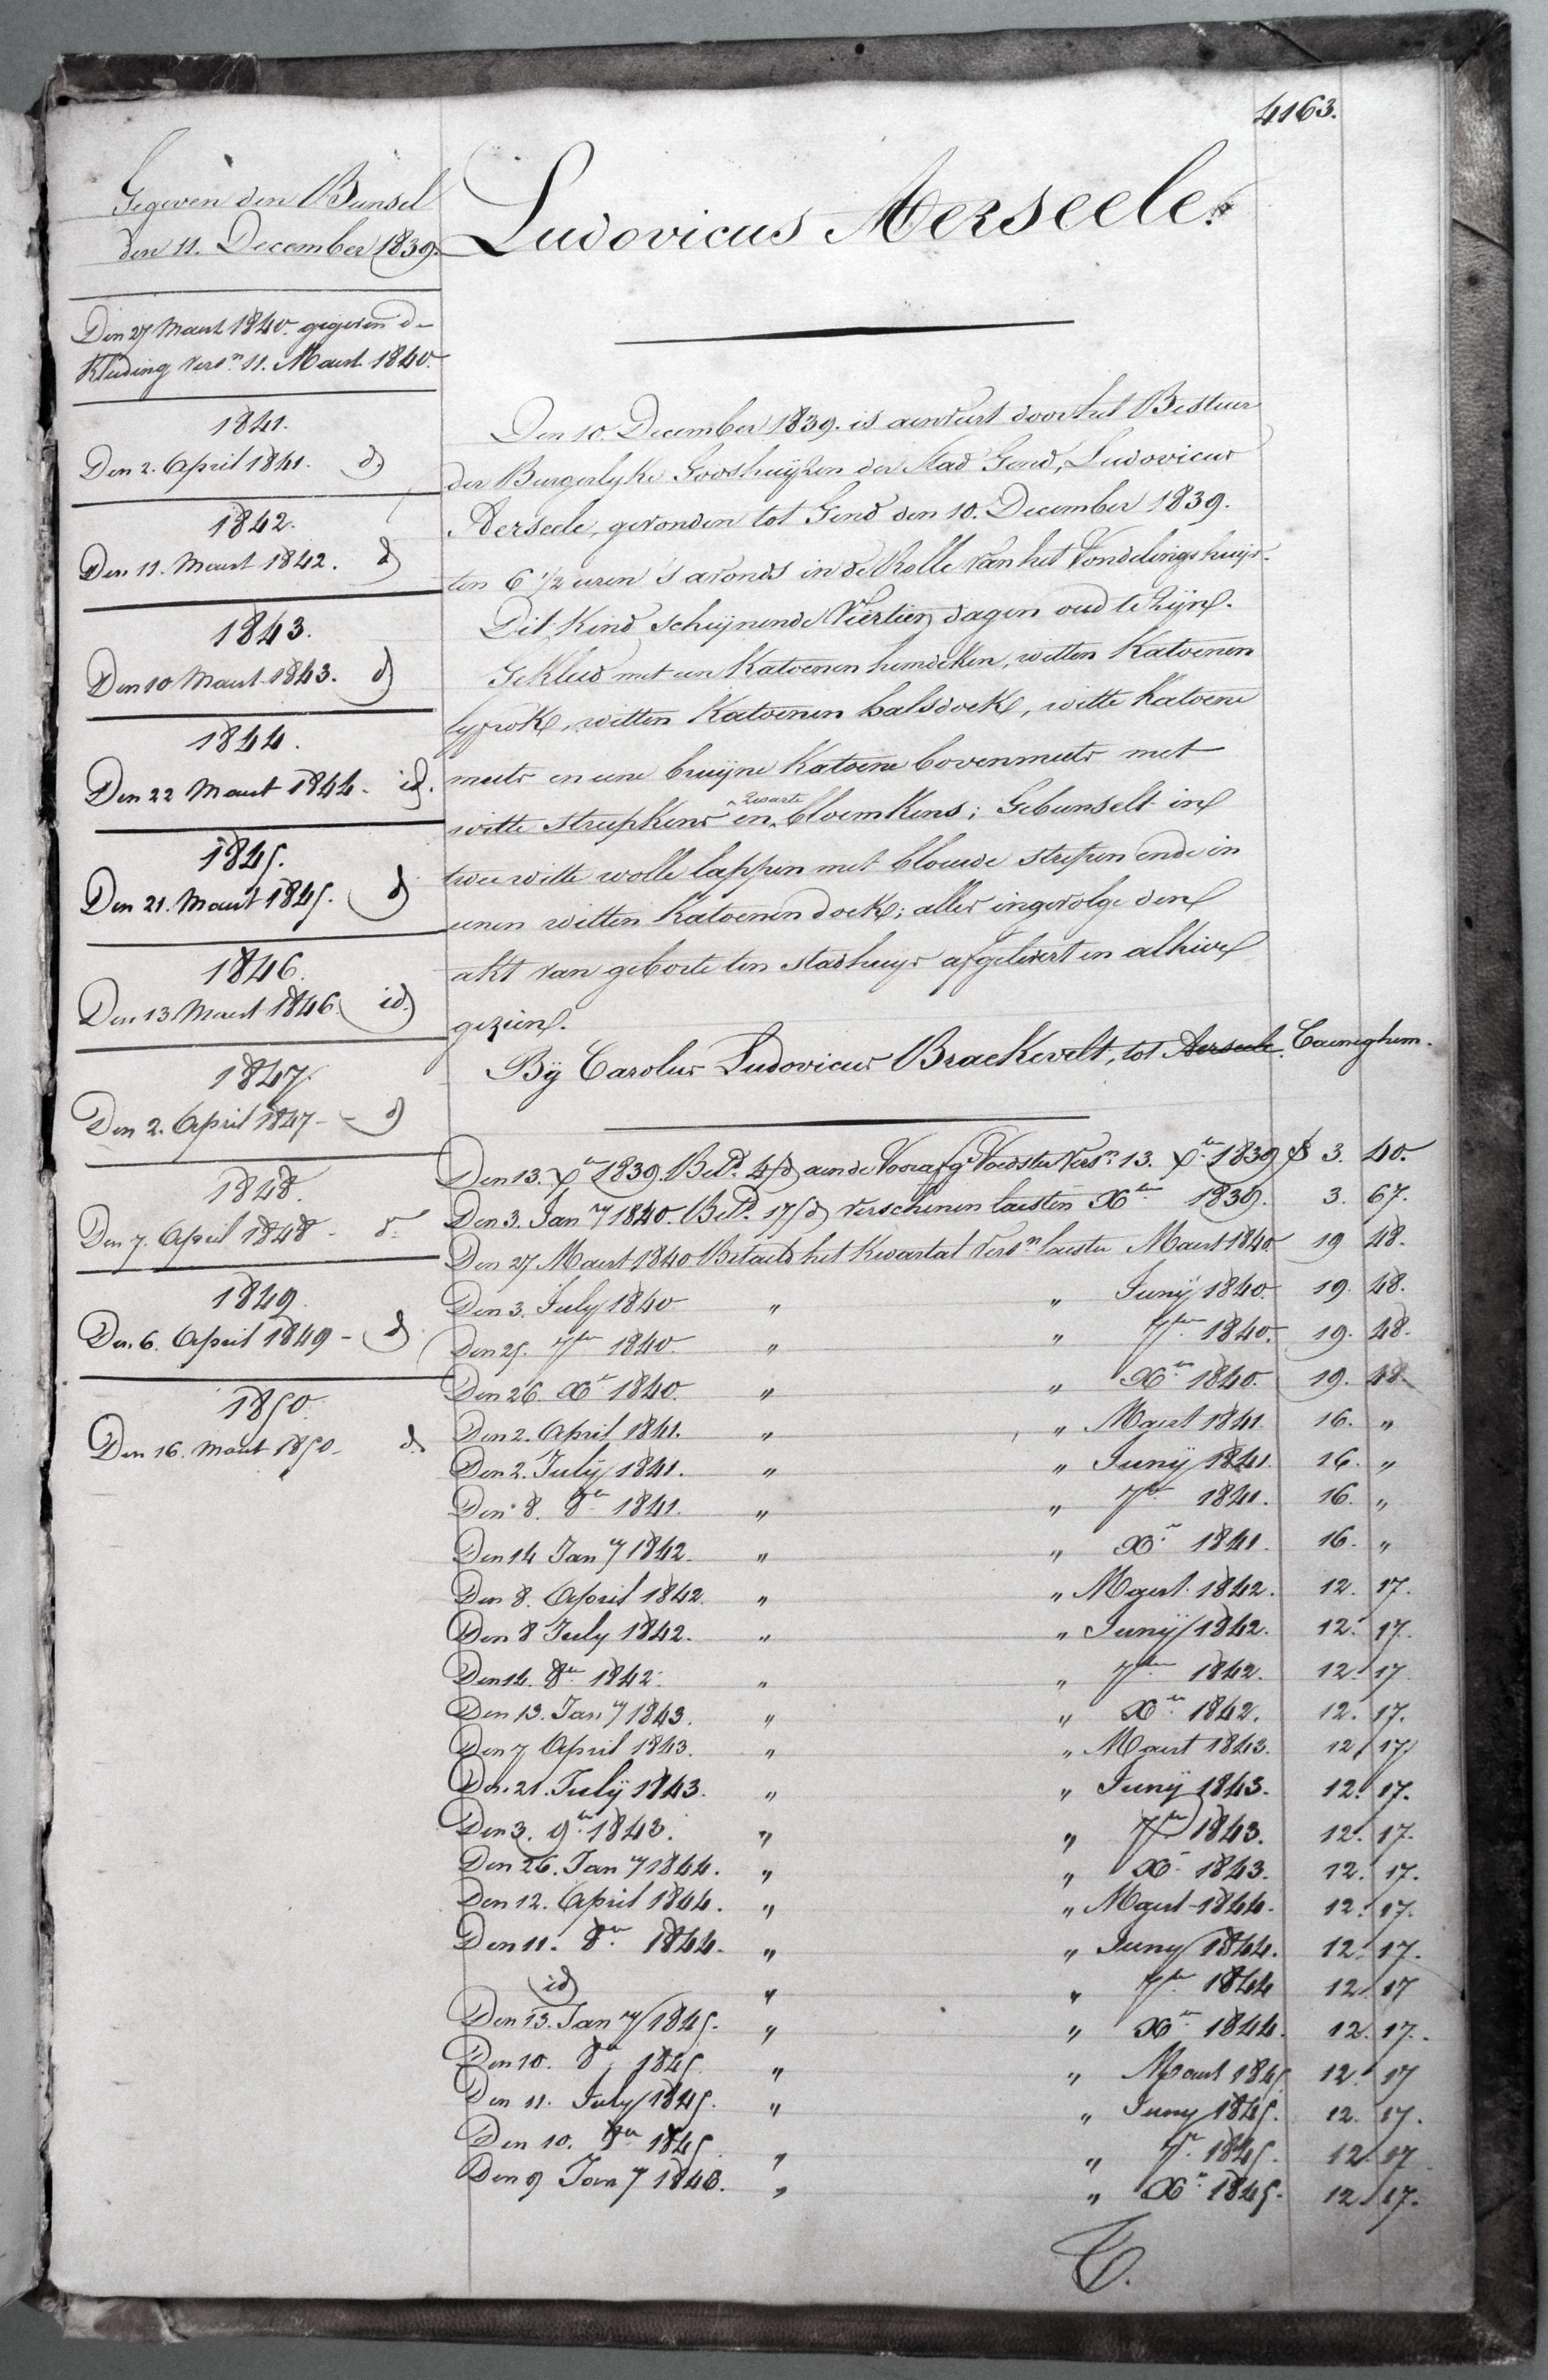 4163.
Gegeven den Bunsel
den 11. December 1839.
Den 27 Maert 1840. gegeven de
Kleeding vers.n 11. Maert 1840.
1841.
Den 2. April 1841. id
1842.
Den 11. Maert 1842. id
1843.
Den 10 Maert 1843. id
1844.
Den 22 Maert 1844. id.
1845.
Den 21. Maert 1845. id
1846.
Den 13 Maert 1846. id.
1847.
Den 2. April 1847 - id
1848.
Den 7. April 1848 - id
1849.
Den 6. April 1849 - id
1850.
Den 16. Maert 1850. id
Ludovicus Aerseele.
Den 10. December 1839. is aenveirt door het Bestuer
der Burgerlyke Godshuijzen der Stad Gend, Ludovicus
Aerseele, gevonden tot Gend den 10. December 1839.
ten 6 1/2 uren 's avonds in de Rolle van het Vondelingshuijs.
Dit Kind schijnende Viertien dagen oud te Zijn.
Gekleed met een Katoenen hemdeken, witten Katoenen
lyfrok, witten Katoenen halsdoek, witte Katoene
muts en eene bruijne Katoene bovenmuts met
witte streepkens en zwarte bloemkens; Gebunselt in
twee witte wolle lappen met blouwe strepen ende in
eenen witten Katoenen doek; alles ingevolge den
akt van geboorte ten stadhuijs afgelevert en alhier
gezien.
Bij Carolus Ludovicus Brackevelt, tot Aerseele. Caeneghem.
Den 13. X.er 1839. Bet.d 4/d aen de Voorafg.e Voedster vers.n 13. X.er 1839 f 3. 40.
Den 3. Jan.y 1840. Bet.d 17/d verschenen laesten X.er 1839. 3. 67.
Den 27 Maert 1840 Betaeld het Kwartal vers.n laeste Maert 1840 19 48.
Den 3. July 1840. " " Junij 1840. 19. 48.
Den 25. 7.ber 1840. " " 7.ber 1840. 19. 48.
Den 26. X.er 1840. " " X.er 1840. 19. 48.
Den 2. April 1841. " " Maert 1841. 16. "
Den 2. July 1841. " " Junij 1841. 16. "
Den 8. 8.er 1841. " " 7.ber 1841. 16. "
Den 14 Jan.y 1842. " " X.er 1841. 16. "
Den 8. April 1842. " " Maert 1842. 12. 17.
Den 8 July 1842. " " Junij 1842. 12. 17.
Den 14. 8.er 1842. " " 7.ber 1842. 12. 17.
Den 13. Jan.y 1843. " " X.er 1842. 12. 17.
Den 7 April 1843. " " Maert 1843. 12. 17.
Den 21. July 1843. " " Junij 1843. 12. 17.
Den 3. 9.er 1843. " " 7.ber 1843. 12. 17.
Den 26. Jan.y 1844. " " X.er 1843. 12. 17.
Den 12. April 1844. " " Maert 1844. 12. 17.
Den 11. 8.er 1844. " " Juny 1844. 12. 17.
id " " 7.ber 1844 12. 17
Den 13. Jan.y 1845. " " X.er 1844. 12. 17.
Den 10. 8.er 1845. " " Maert 1845. 12. 17
Den 11. July 1845. " " Juny 1845. 12. 17.
Den 10. 8.er 1845. " " 7.er 1845. 12. 17
Den 9 Jan.y 1846. " " X.er 1845. 12. 17.